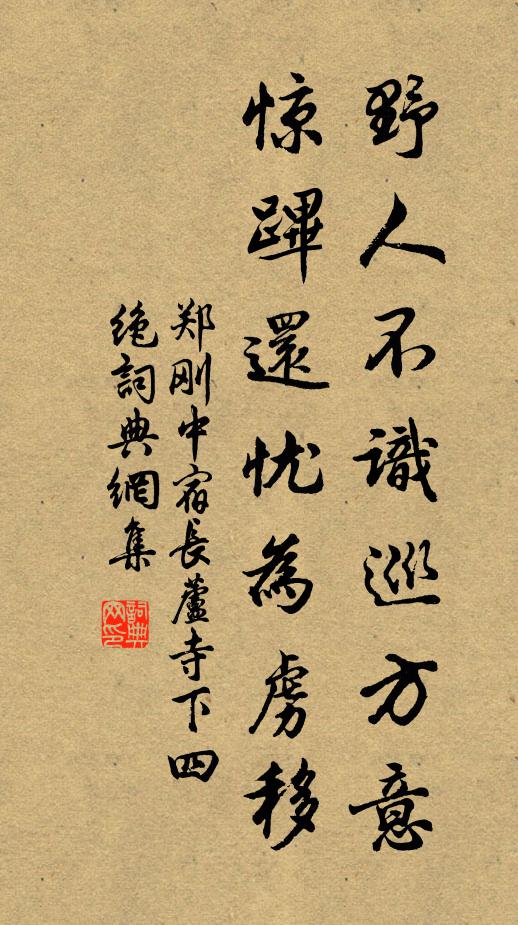 野人不識巡方意
惊蹕還忧為虏移
郑刚中宿長蘆寺下四
绝詞典網集
詞典网印